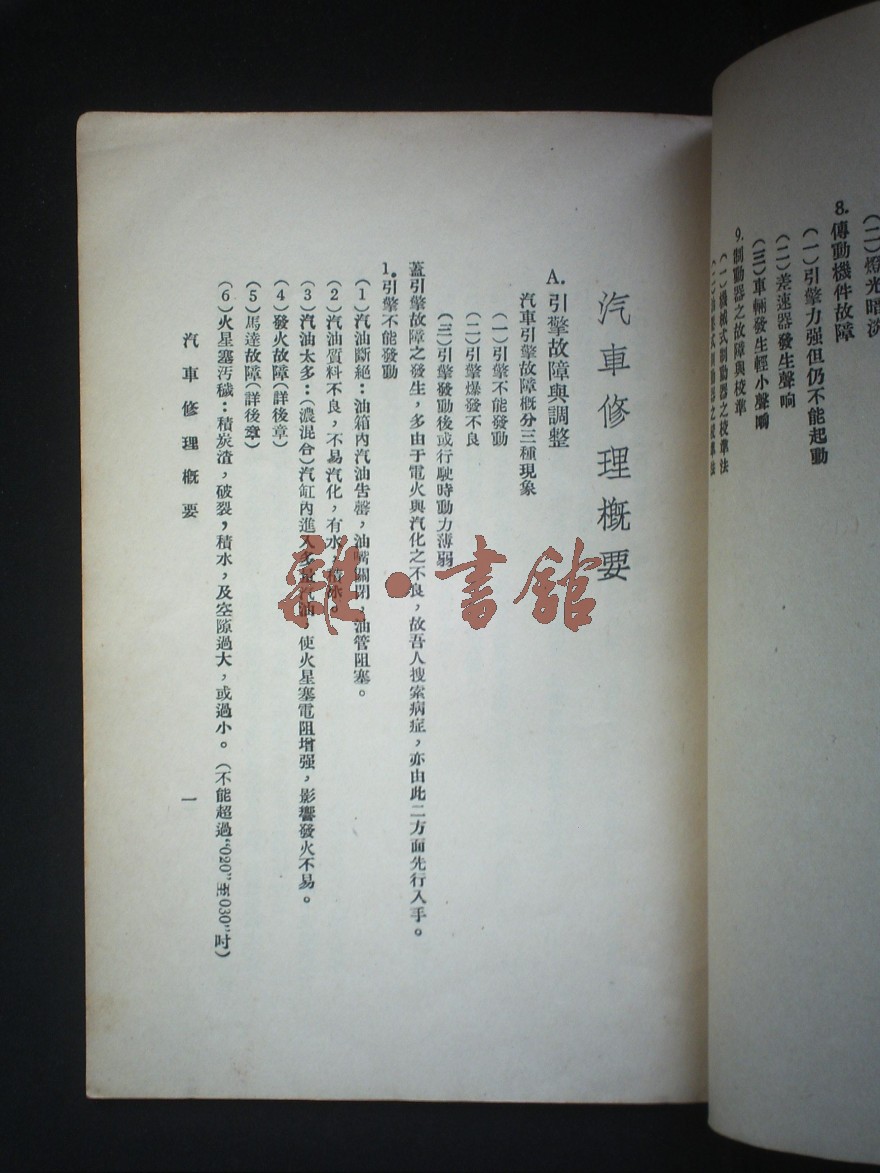 (二)燈光暗淡
8.傳動機件故障
(一)引擎力强但仍不能起動
(二)差速器發生聲响
(三)車輛發生輕小聲嘀
9.制動器之故障與校準
(一)機械式制動器之校準法
汽車修理概要
A.引擎故障與調整
汽車引擎故障概分三種現象
(一)引擎不能發動
(二)引擎爆發不良
(三)引擎發動後或行駛時動力薄弱
蓋引擎故障之發生,多由于電火與汽化之不良,故吾人搜索病症,亦由此二方面先行入手。
1.引擎不能發動
(1)汽油斷絕:油箱內汽油告罄,油嘴關閉,油管阻塞。
(2)汽油質料不良,不易汽化,有水,
(3)汽油太多:(濃混合)汽缸內進入多量汽油,使火星塞電阻增强,影響發火不易。
(4)發火故障(詳後章)
(5)馬達故障(詳後章)
(6)火星塞汚穢:積炭渣,破裂,積水,及空隙過大,或過小。(不能超過"020"至030"吋)
汽車修理概要
一
雜·書館